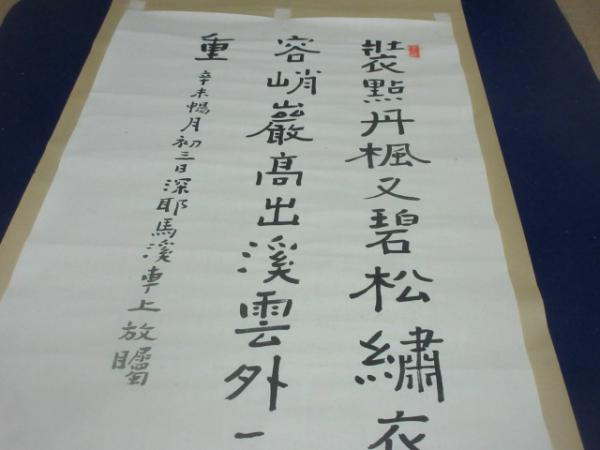 裝點丹楓又碧松繡衣
容峭巖高出溪雲外一
重
辛未鴨月初三日深耶馬溪車上放矚